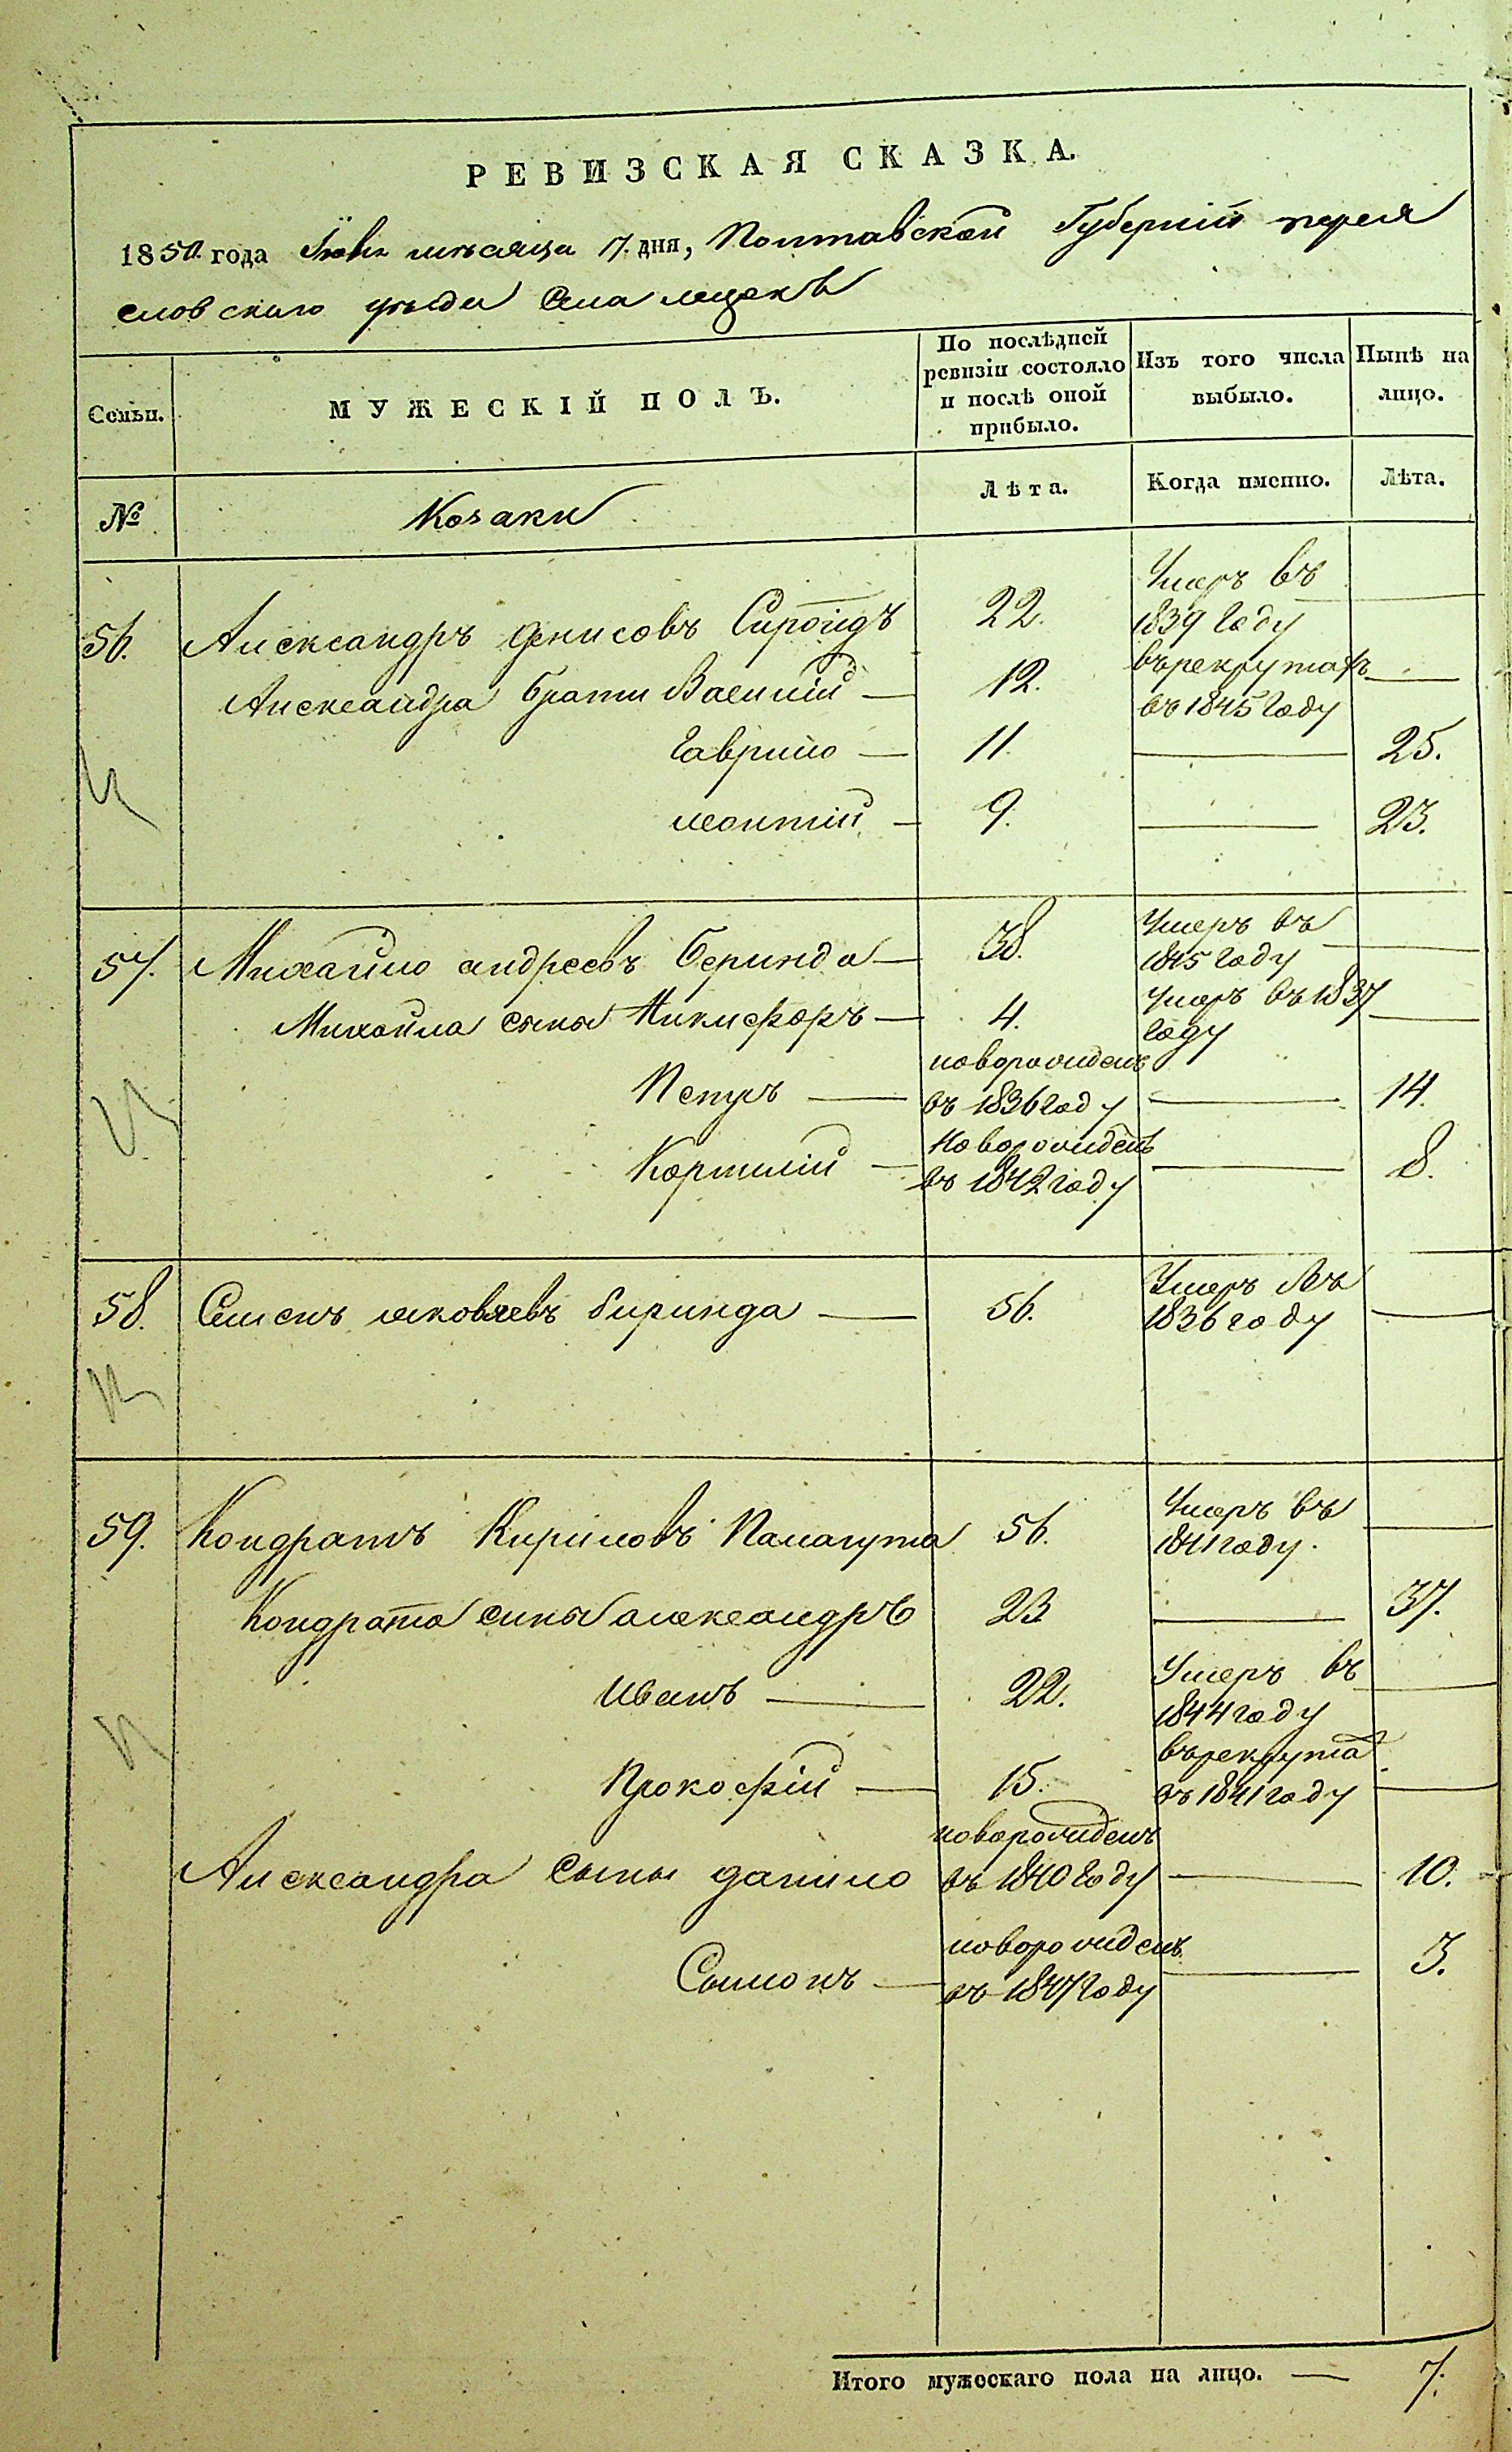 РЕВИЗСКАЯ СКАЗКА.
1850 года Іюня мѣсяца 17 дня, Полтавской Губерніи перея
словского уѣзда Села
Семьи. МУЖЕСКІЙ ПОЛЪ. По послѣдней ревизіи состояло и послѣ оной прибыло. Изъ того числа выбыло. Нынѣ на лицо.
№ Козаки Лѣта. Когда именно. Лѣта.
56. Александръ Денисовъ Сироїдъ 22. Умеръ въ 1839 году —
Александра братья Василій — 12. въ рекрутахъ въ 1845 году —
Гаврило — 11. — 25.
леонтій — 9. — 23.
57. Михайло андреевъ беринда — 38. Умеръ въ 1845 году —
Михайла сыны Никифоръ — 4. Умеръ въ 1837 году —
Петръ — новорожденъ въ 1836 году — 14.
Корнилій — новорожденъ въ 1842 году — 8.
58. Семенъ яковлевъ биринда — 56. Умеръ въ 1836 году —
59. Кондратъ Кириловъ Паламута 56. Умеръ въ 1841 году. —
Кондрата сины александръ 23 — 37.
Иванъ — 22. Умеръ въ 1844 году —
Прокофій — 15. въ рекрута въ 1841 году —
Александра Сыны данило новорожденъ въ 1840 году — 10.
Симонъ — новорожденъ въ 1847 году — 3.
Итого мужескаго пола на лицо. — 7.